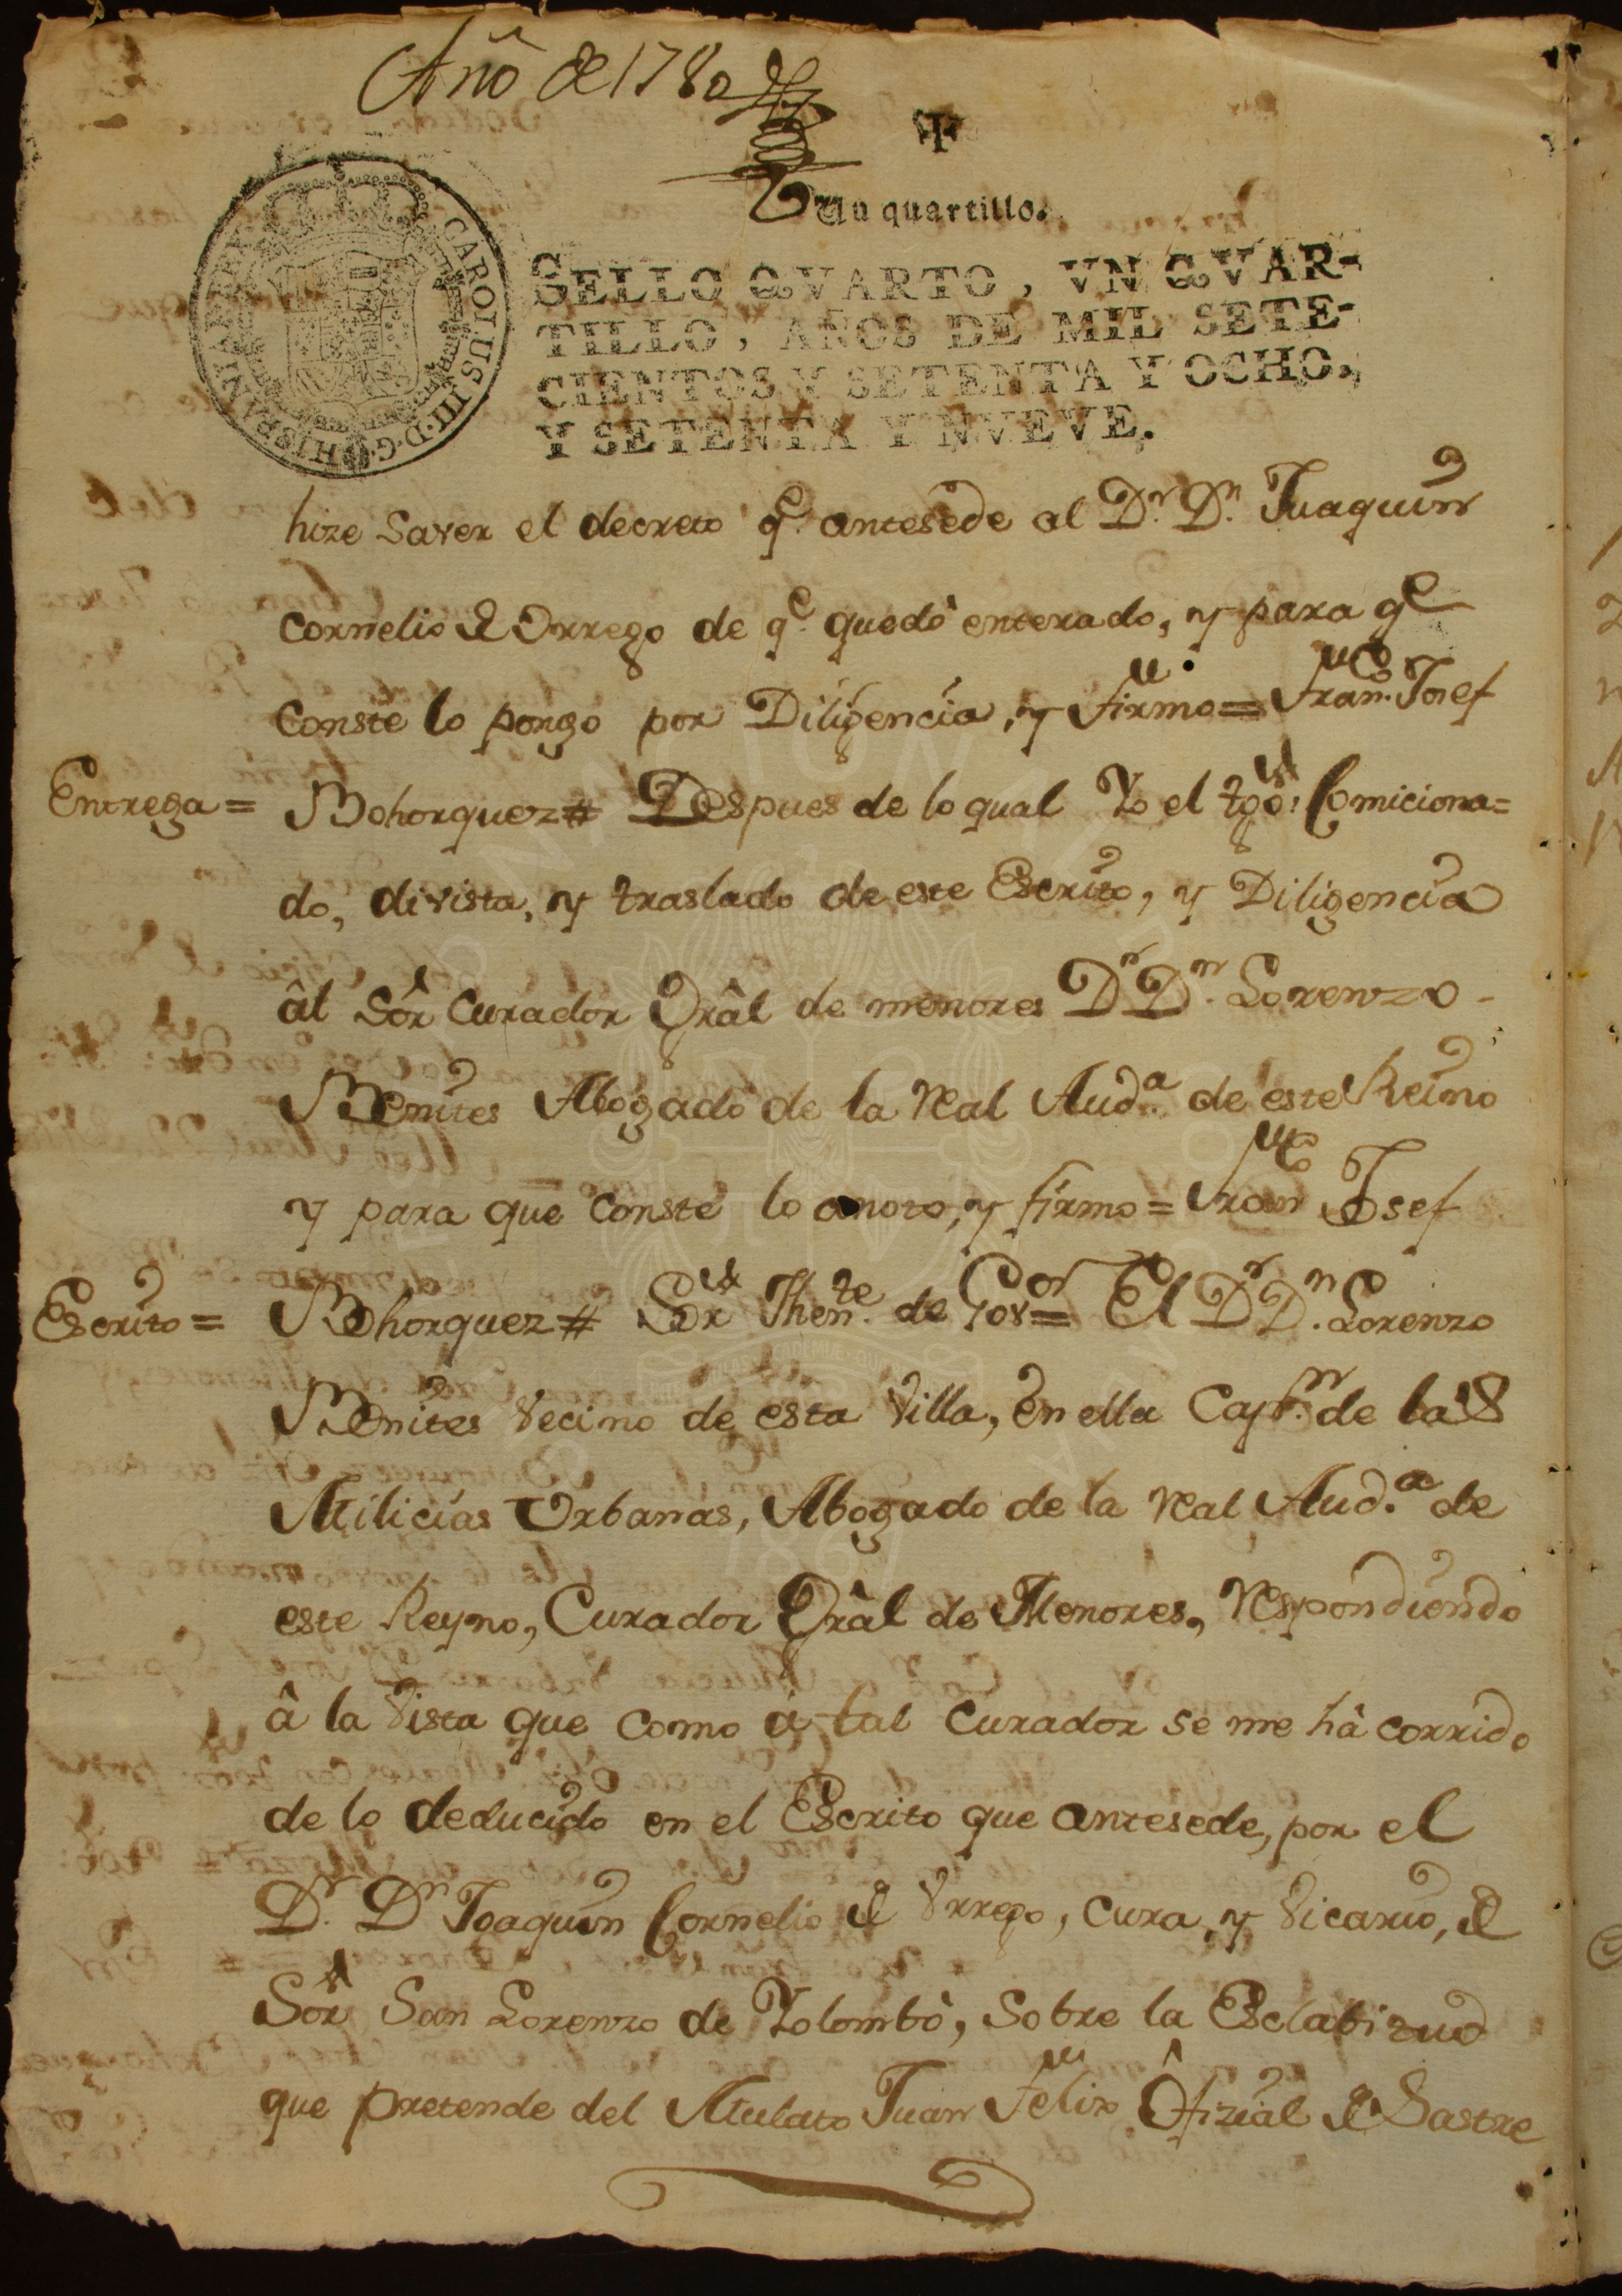 Año de 1780
Un quartillo.
SELLO QVARTO, VN QVAR-
TILLO, AÑOS DE MIL SETE-
CIENTOS Y SETENTA Y OCHO,
Y SETENTA Y NVEVE.
CAROLUS III D. G. HISPANIAR REX
hize saver el decreto qe. antesede al Dr. Dn. Juaquin
Cornelio de Orrego de qe. quedò enterado, y para qe
conste lo pongo por Diligencia, y firmo = Franco. Josef
Entrega = Bohorquez # Despues de lo qual Yo el tgô: Comiciona=
do, di vista, y traslado de este Escrito, y Diligencia
âl Sôr Curador Grâl de menores Dr Dn. Lorenzo -
Benites Abogado de la Real Auda. de este Reino
y para que conste lo anoto, y firmo = Franco Josef
Escrito = Bohorquez # Sôr Thente. de Govor = El Dr Dn. Lorenzo
Benites Vecino de esta Villa, en ella Capn. de las
Milicias Urbanas, Abogado de la Real Aud.a de
este Reyno, Curador Grâl de Menores, respondiendo
â la Vista que como á tal Curador se me hâ corrido
de lo deducido en el Escrito que antesede, por el
Dr. Dn Joaquin Cornelio de Urrego, Cura, y Vicario, de
Sôr San Lorenzo de Yolombò, Sobre la Esclabitud
que pretende del Mulato Juan Felix Ôfizial de Sastre